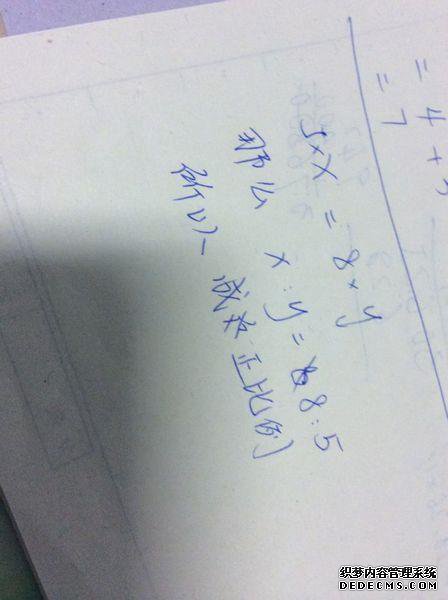 = 4 + 3
= 7
5×X = 8×y
那么 x:y=8:5
所以 成 正比例
织梦内容管理系统
DEDECMS.COM